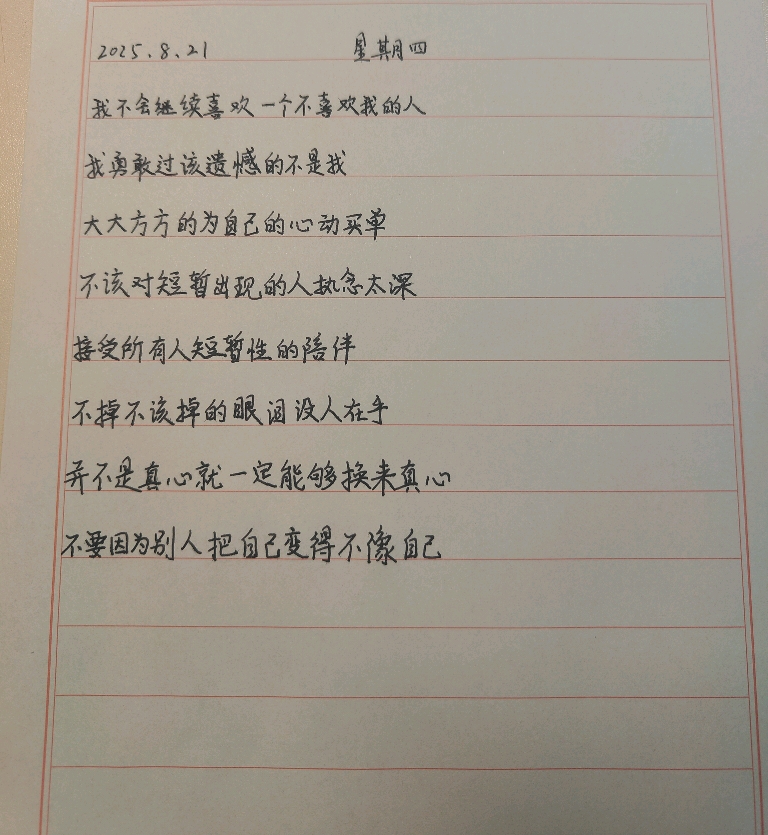 2025.8.21 星期四
我不会继续喜欢一个不喜欢我的人
我勇敢过该遗憾的不是我
大大方方的为自己的心动买单
不该对短暂出现的人执念太深
接受所有人短暂性的陪伴
不掉不该掉的眼泪没人在乎
并不是真心就一定能够换来真心
不要因为别人把自己变得不像自己